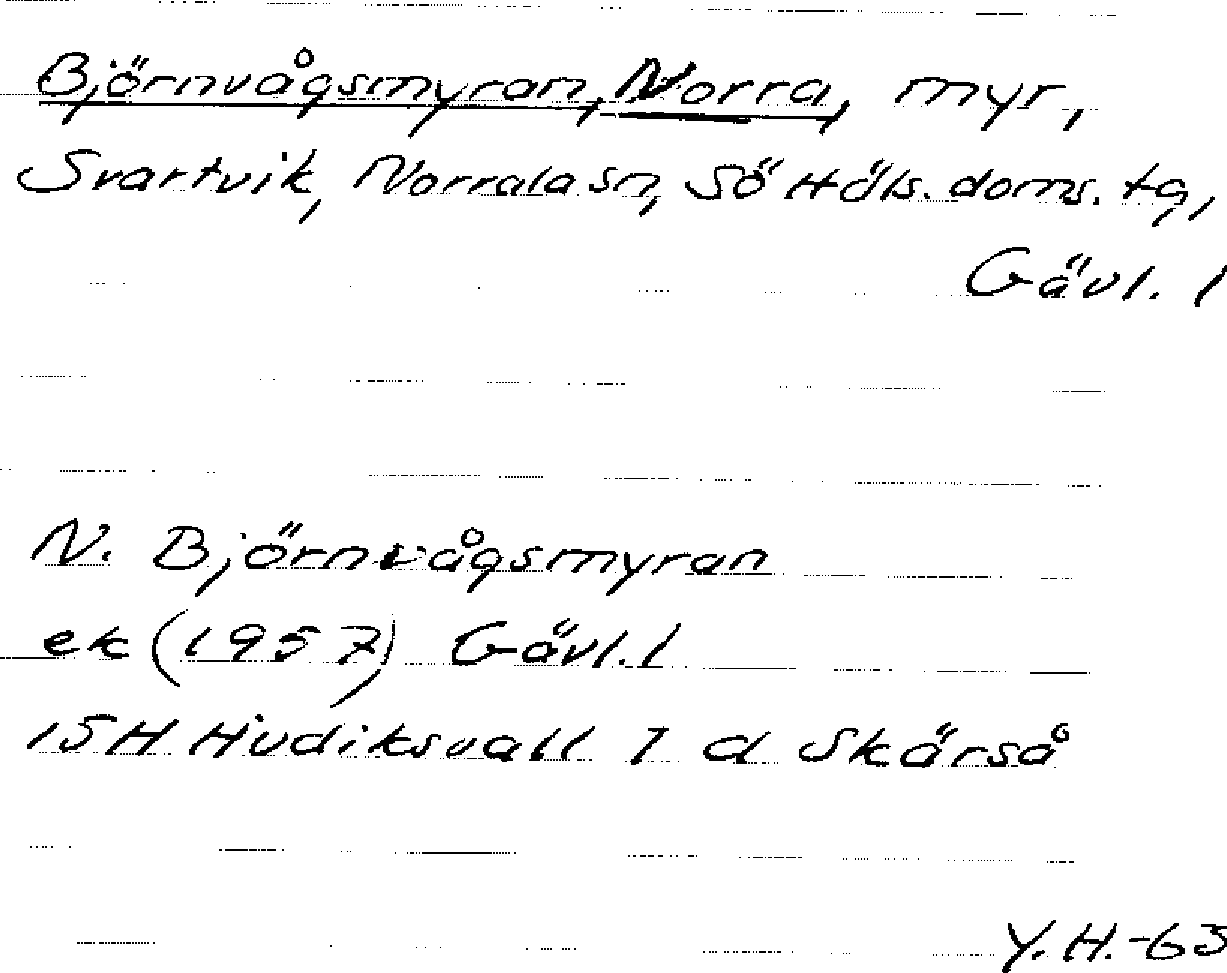 Björnvågsmyran, Norra, myr,
Svartvik, Norrala sn, Sö Häls. doms. tg,
Gävl. l
N. Björnvågsmyran
ek (1957) Gävl. l
15H Hudiksvall 7 d Skärså
Y.H.-63